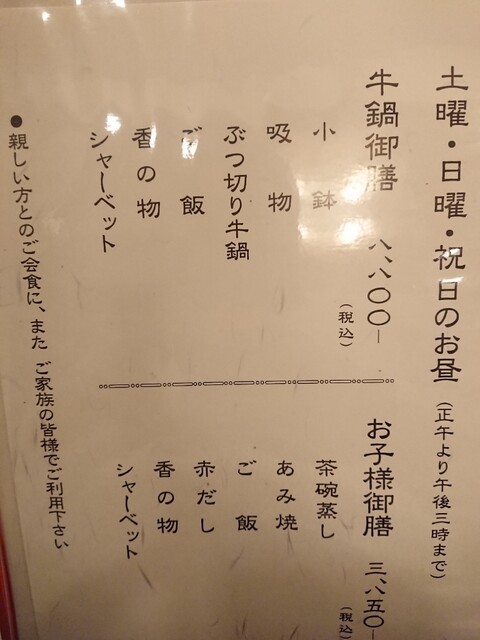 土曜・日曜・祝日のお昼（正午より午後三時まで）
牛鍋御膳 八、八〇〇－
（税込）
小鉢
吸物
ぶつ切り牛鍋
ご飯
香の物
シャーベット
お子様御膳 三、八五〇
（税込）
茶碗蒸し
あみ焼
ご飯
赤だし
香の物
シャーベット
●親しい方とのご会食に、また ご家族の皆様でご利用下さい